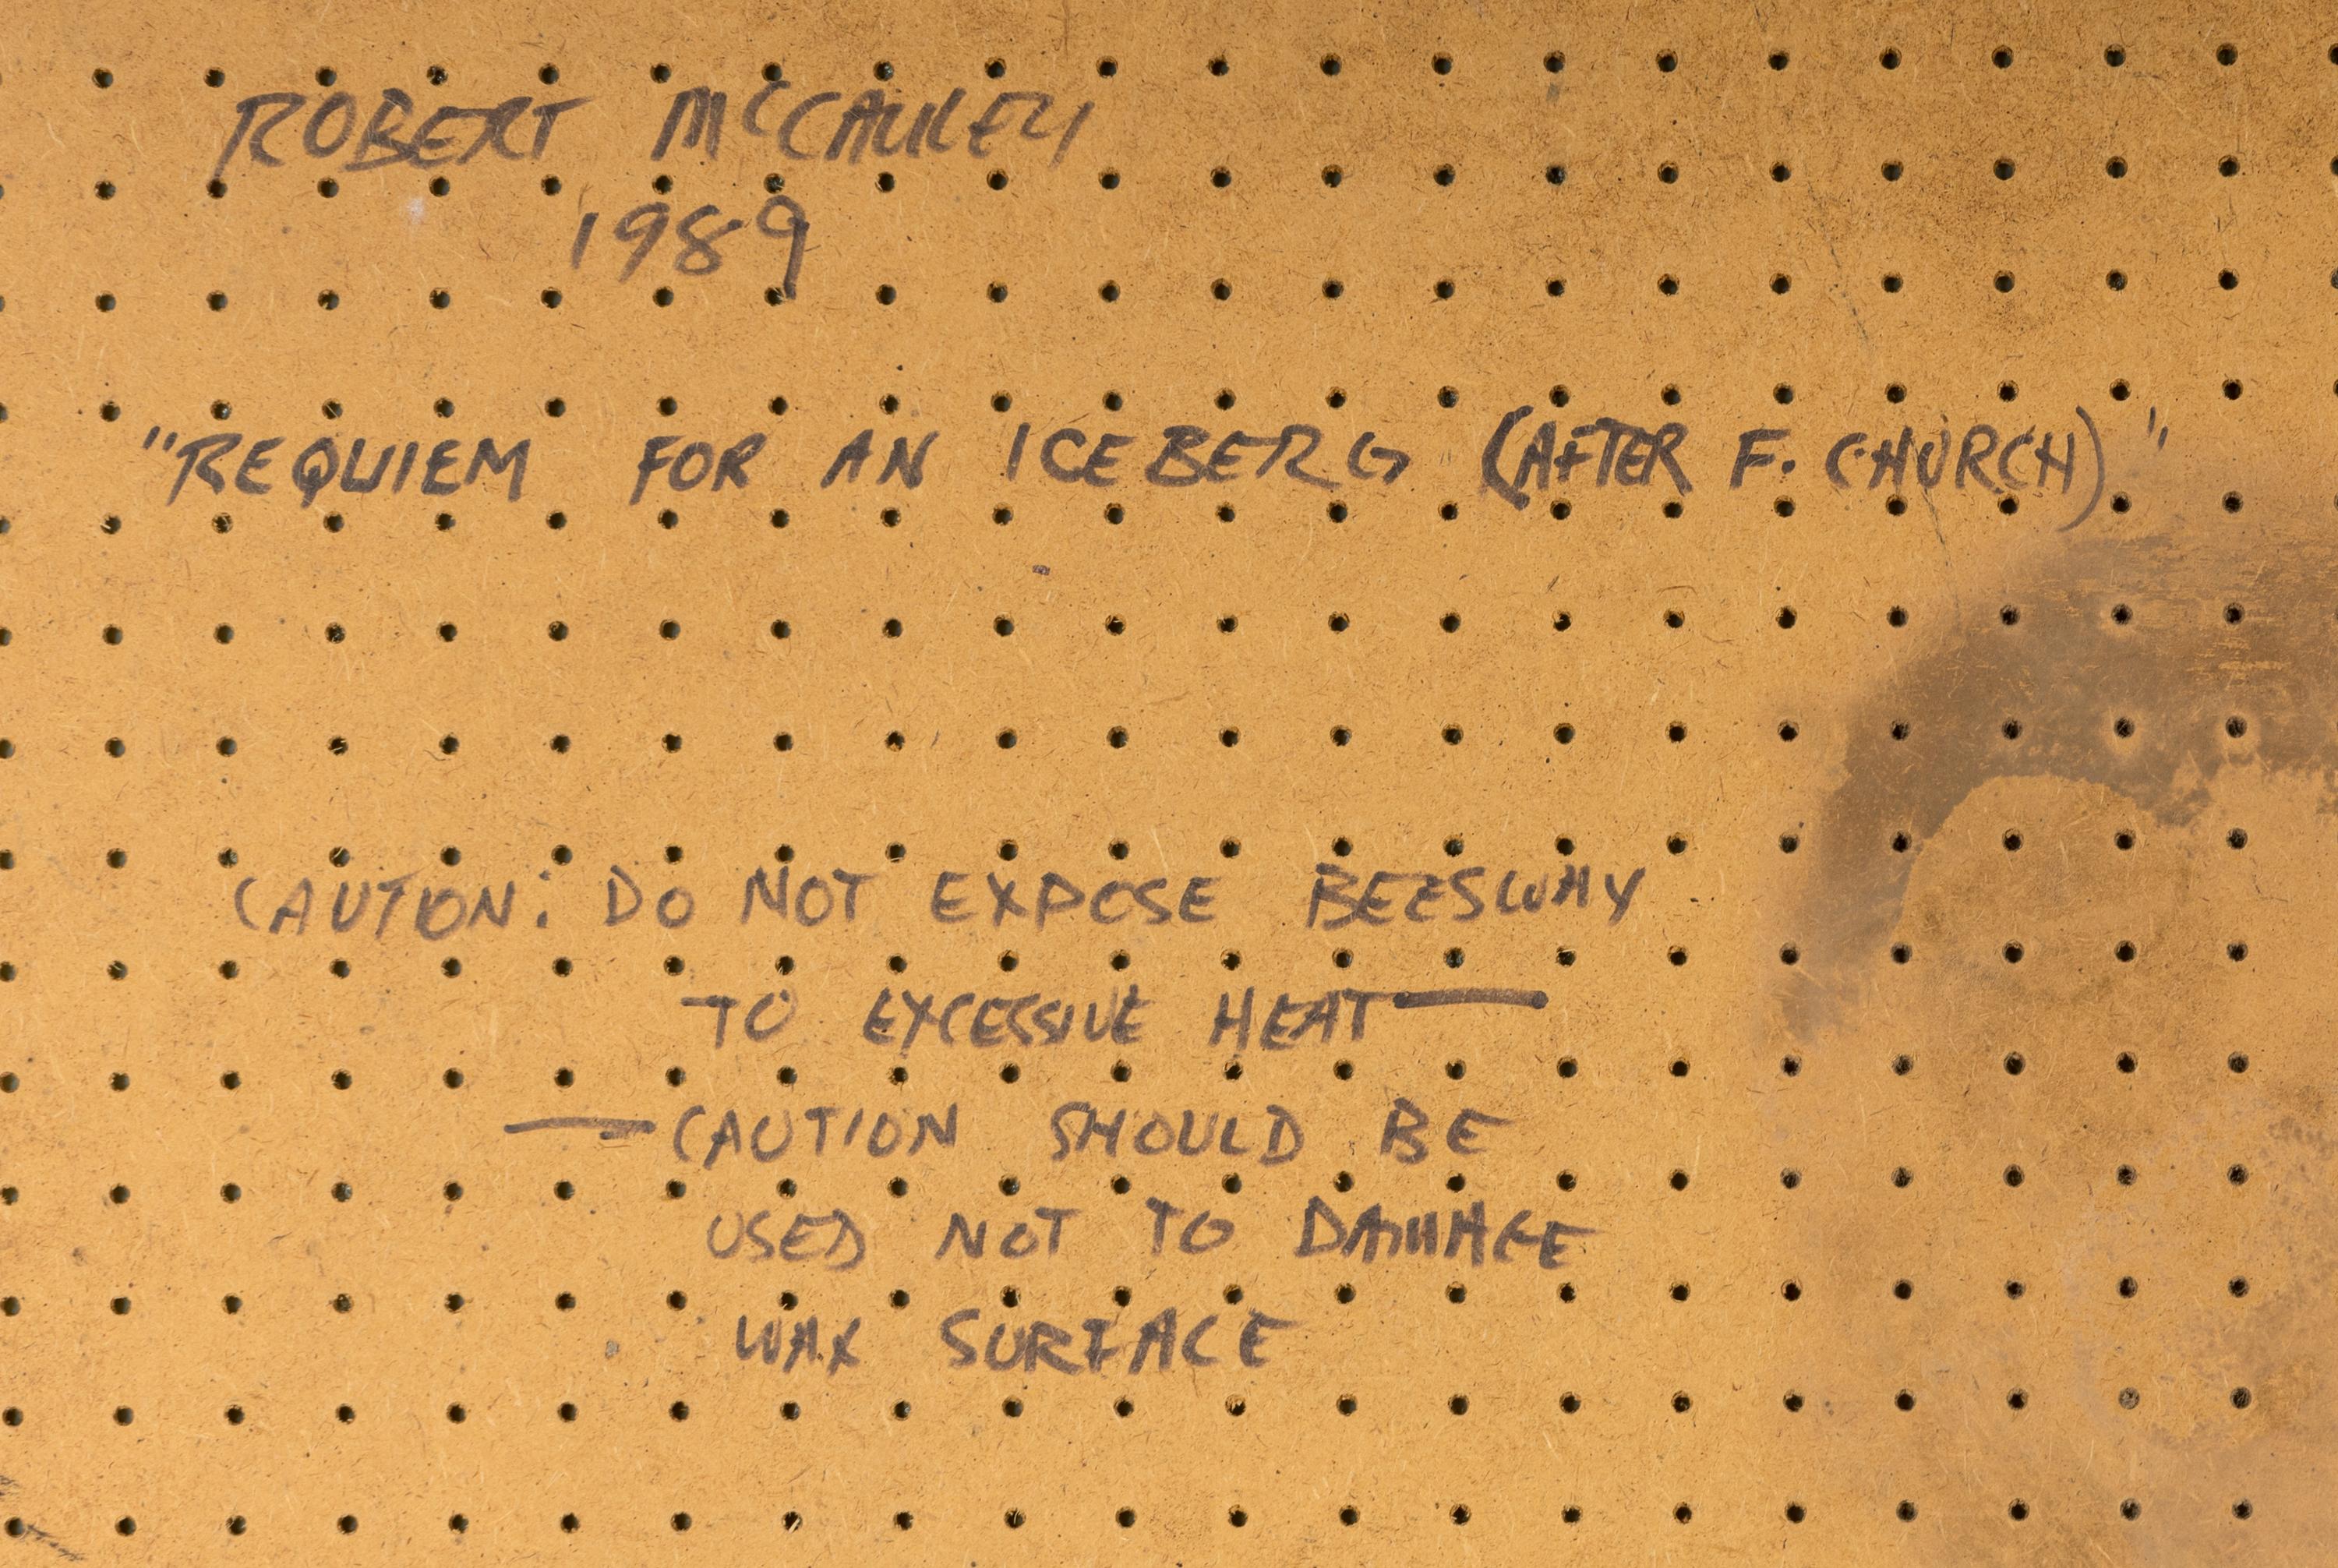 ROBERT McCAULEY
1989
"REQUIEM FOR AN ICEBERG (AFTER F. CHURCH)"
CAUTION: DO NOT EXPOSE BEESWAX
TO EXCESSIVE HEAT —
— CAUTION SHOULD BE
USED NOT TO DAMAGE
WAX SURFACE